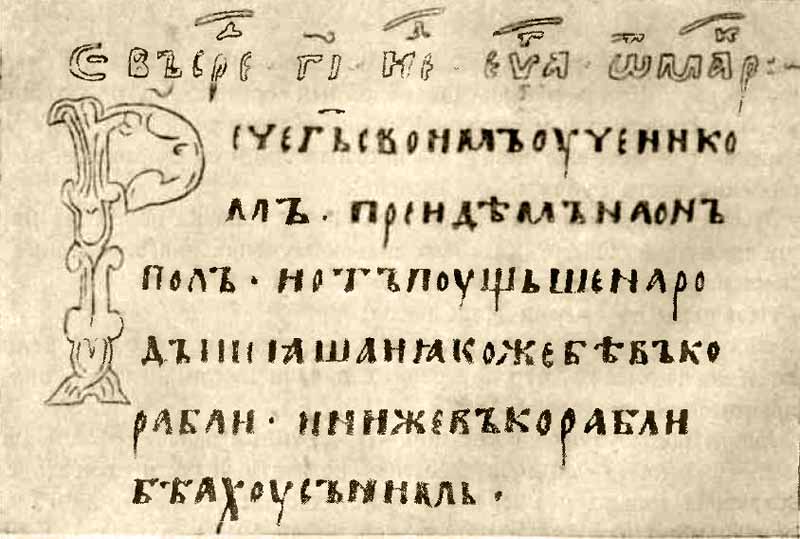 въ сре҇ⷣ · г҃і · не҇ⷣ · еѵⷢ҇а · ѿ маⷦ҇р :~
Рече г҃ь своимъ оученико
мъ · преидѣмъ на онъ
полъ · и отъпоущьше наро
дъ и ꙗкоже бѣ въ ко
рабли · и ини же въ корабли
бѣахоу съ нимь ·